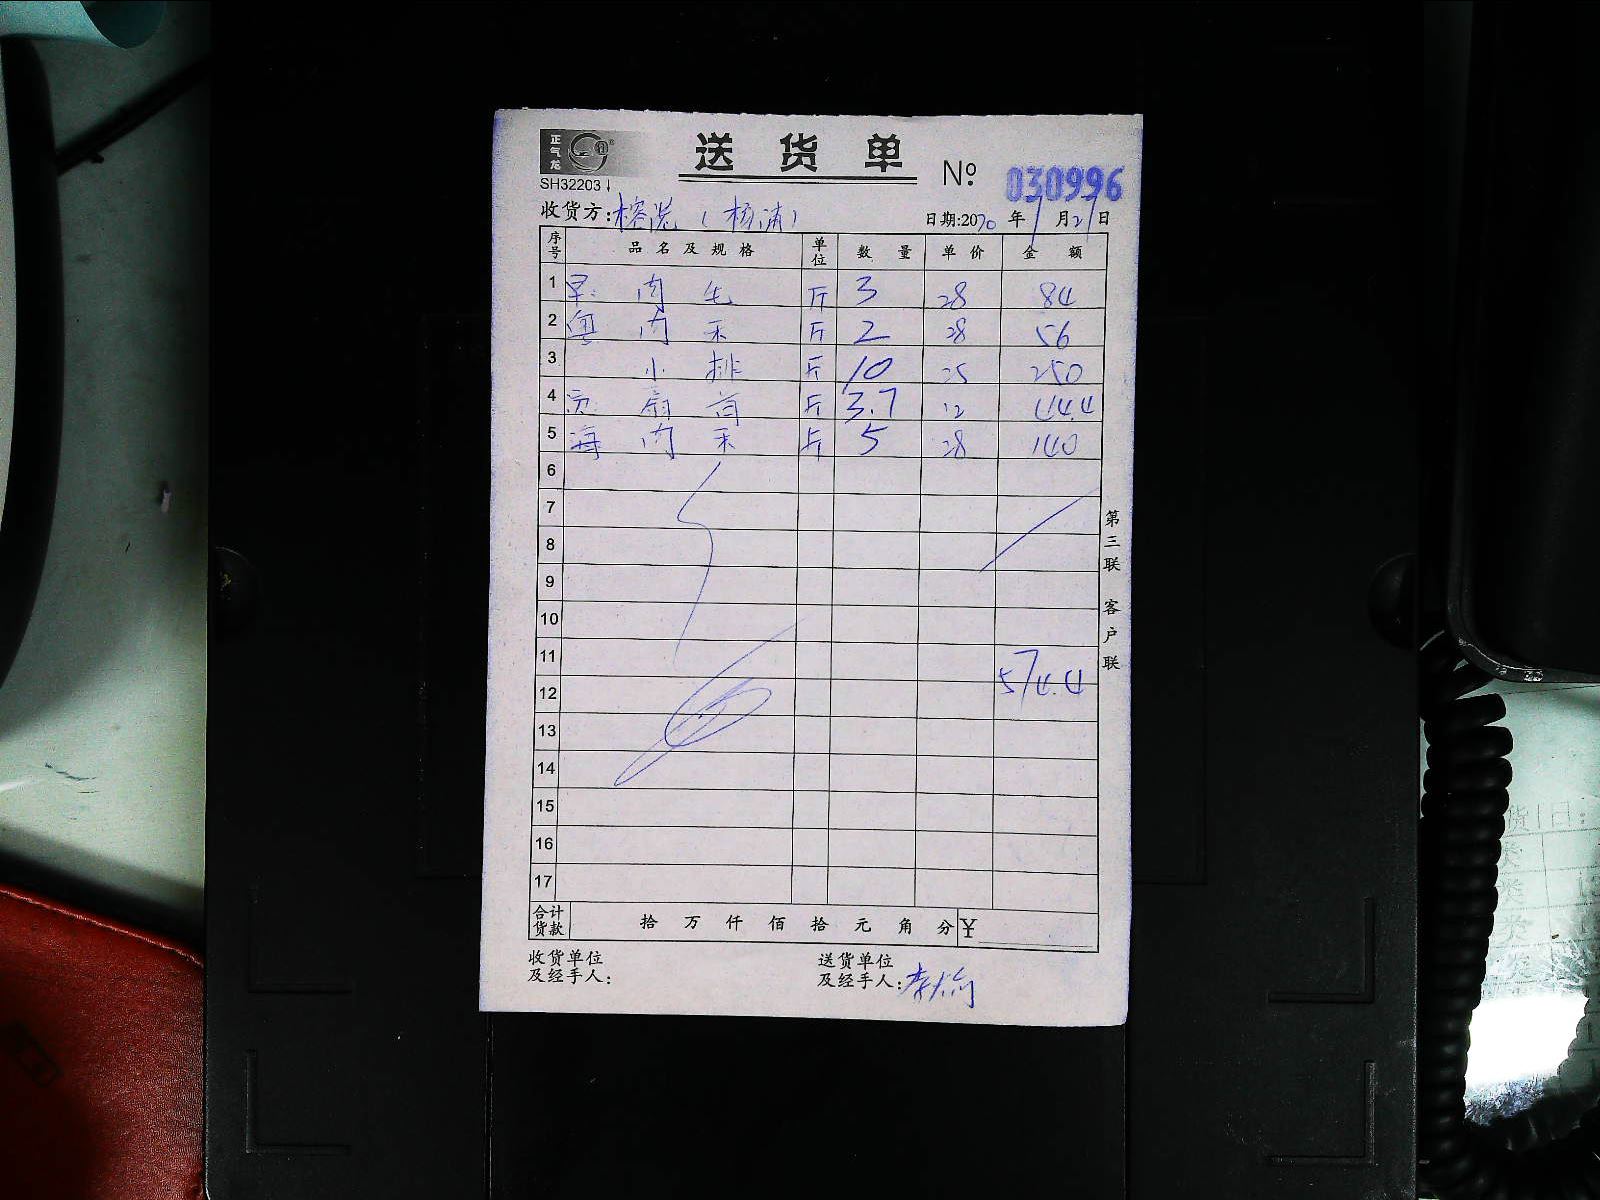 正气龙
送货单
SH32203
№ 030996
收货方: (杨浦)
日期:2020年1月21日
序号 品名及规格 单位 数量 单价 金额
1 早 肉 斤 3 28 84
2 粤 肉 禾 斤 2 28 56
3 小 排 斤 10 25 250
4 扇 斤 3.7 12 44.4
5 海 肉 禾 斤 5 28 140
6
7
8
9
10
11
574.4
12
13
14
15
16
17
第三联 客户联
合计货款 拾 万 仟 佰 拾 元 角 分 ¥
收货单位及经手人:
送货单位及经手人: